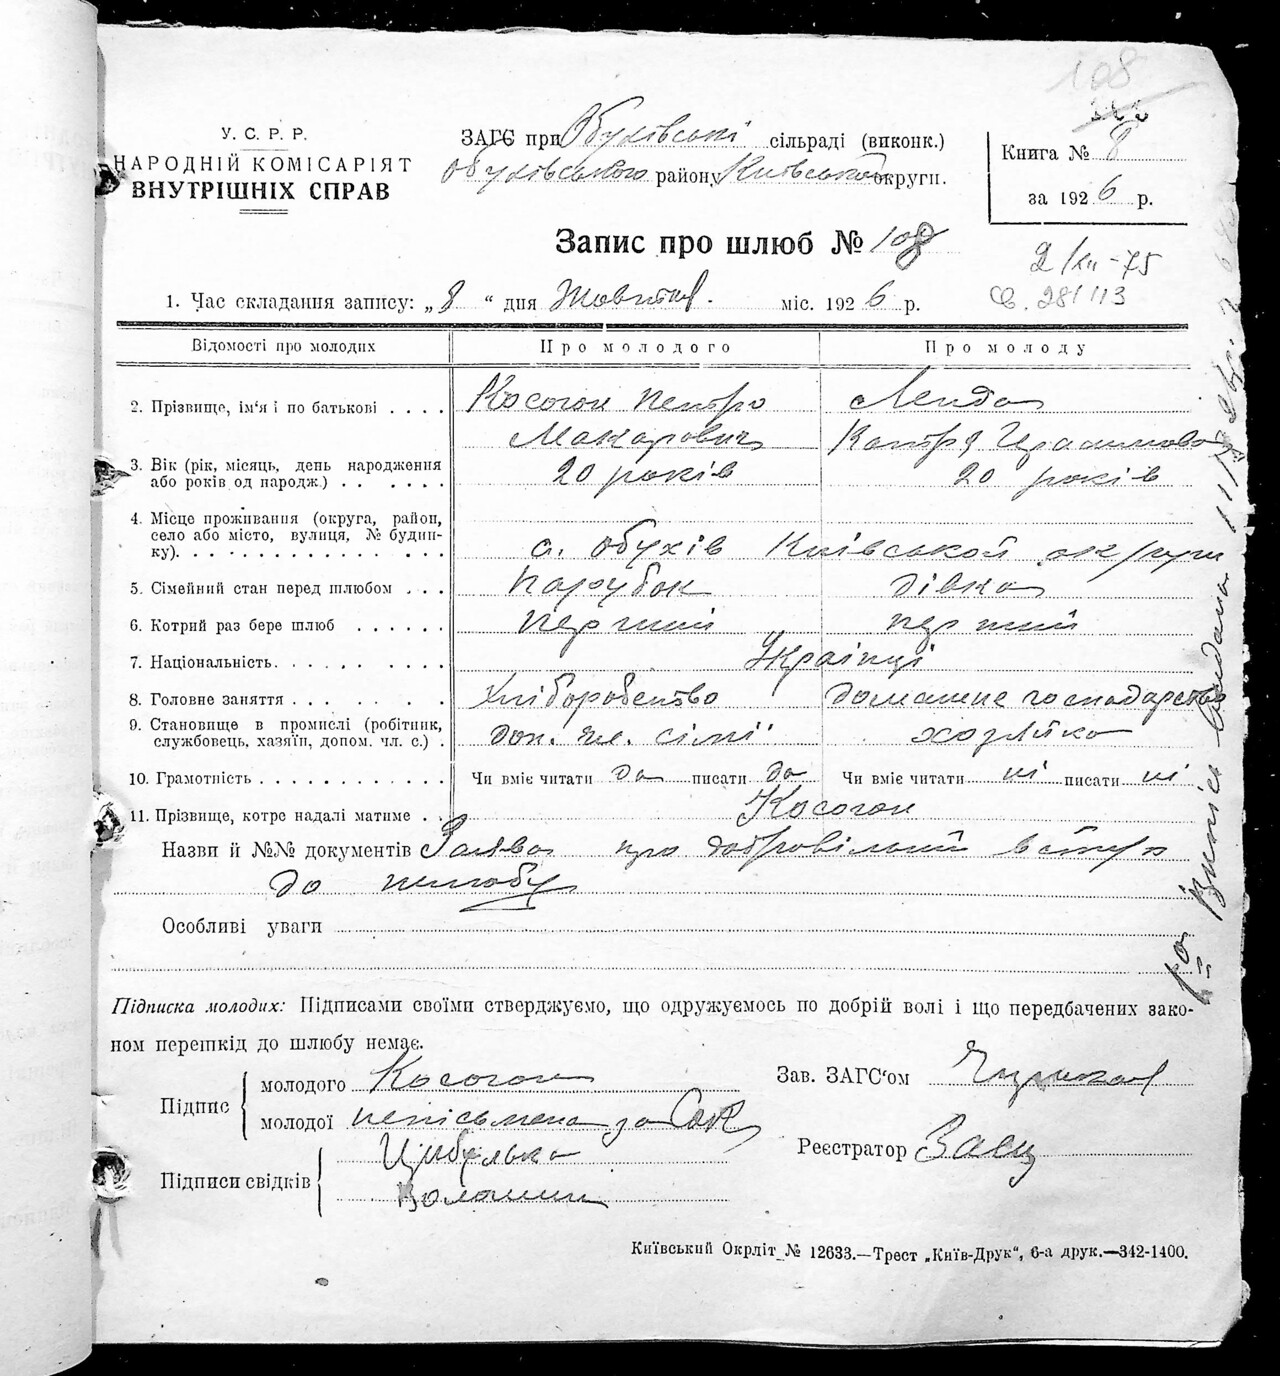 108
У. С. Р. Р.
НАРОДНІЙ КОМІСАРІЯТ
ВНУТРІШНІХ СПРАВ
ЗАГС при Обухівські сільраді (виконк.)
Обухівського району Київської округи.
Книга № 8
за 1926 р.
Запис про шлюб № 108
2/XII-75
1. Час складання запису: „8“ дня Жовтня міс. 1926 р.
Відомості про молодих Про молодого Про молоду
2. Прізвище, ім'я і по батькові . . . . Косогон Петро Макарович Ленда Катря
3. Вік (рік, місяць, день народження
або років од народж.) . . . . . . 20 років 20 років
4. Місце проживання (округа, район,
село або місто, вулиця, № будин-
ку). . . . . . . . . . . . . . . с. Обухів Київської округи
5. Сімейний стан перед шлюбом . . . Парубок дівка
6. Котрий раз бере шлюб . . . . . . перший перший
7. Національність. . . . . . . . . . Українці
8. Головне заняття . . . . . . . . Хліборобство домашнє господарство
9. Становище в промислі (робітник,
службовець, хазяїн, допом. чл. с.) . доп. чл. сімї хозяйка
10. Грамотність . . . . . . . . . . . Чи вміє читати да писати да Чи вміє читати ні писати ні
11. Прізвище, котре надалі матиме . . Косогон
Назви й №№ документів Заява про добровільний вступ
до шлюбу
Особливі уваги
Підписка молодих: Підписами своїми стверджуємо, що одружуємось по добрій волі і що передбачених зако-
ном перешкід до шлюбу немає.
Підпис
молодого Косогон
молодої неписьмена за
Зав. ЗАГС'ом
Підписи свідків
Цибулько
Волошин
Реєстратор Заєц
Київський Окрліт № 12633.—Трест „Київ-Друк“, 6-а друк.—342-1400.